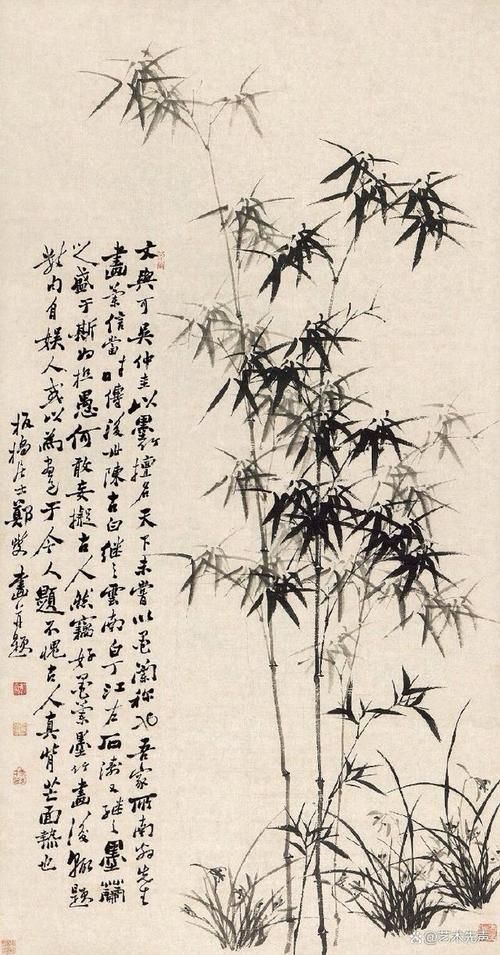 文與可吳仲圭以墨竹擅名天下未嘗以墨蘭称也吾家所南翁先生
畫蘭信當時傳後世陳古白继之雲南白丁江左石濤又继之墨蘭
之盛于斯為極愚何敢妄擬古人然竊好墨蘭墨竹畫後輙題
內自娱人或以為于今人題不愧古人真背芒面熱也
板橋居士鄭燮畫并題
@艺术先声